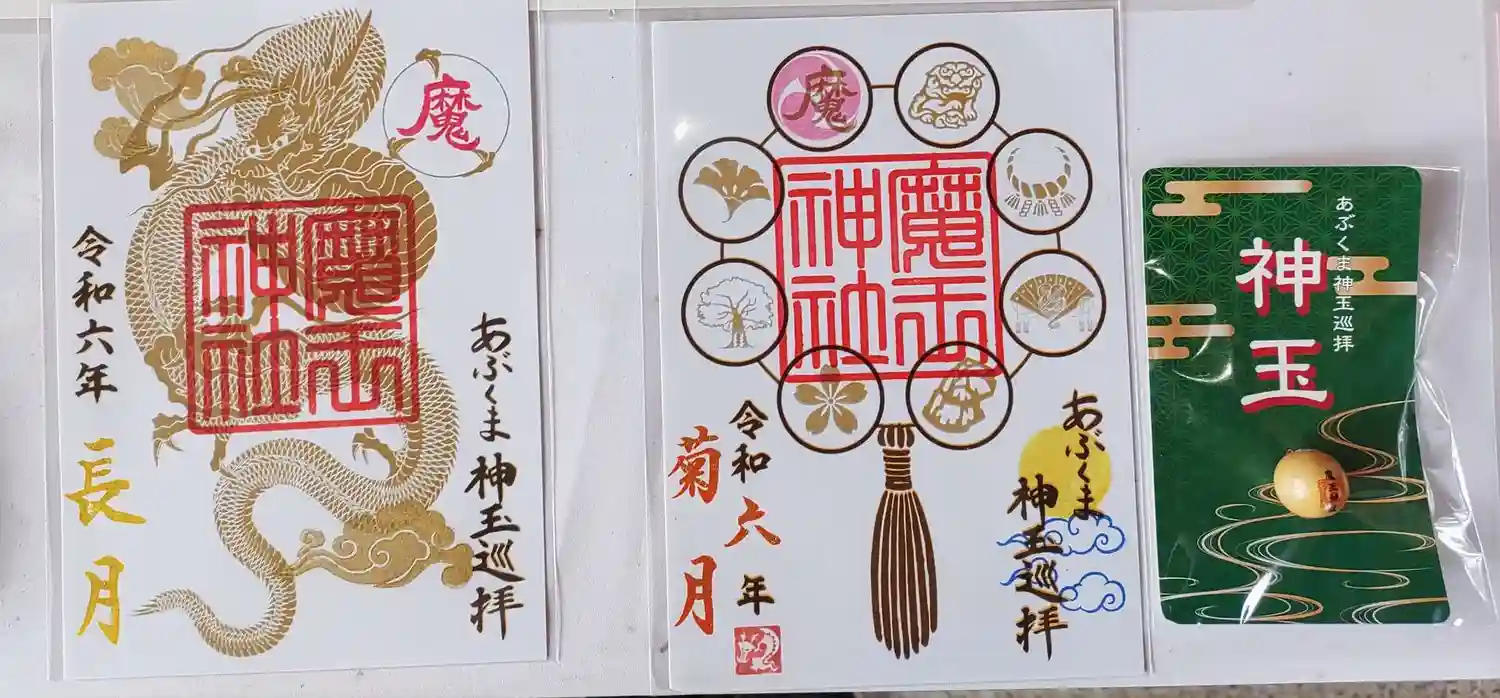 魔
魔王
神社
令和六年
長月
あぶくま
神玉巡拝
魔
魔王
神社
令和六年
菊月
あぶくま
神玉巡拝
あぶくま神玉巡拝
神玉